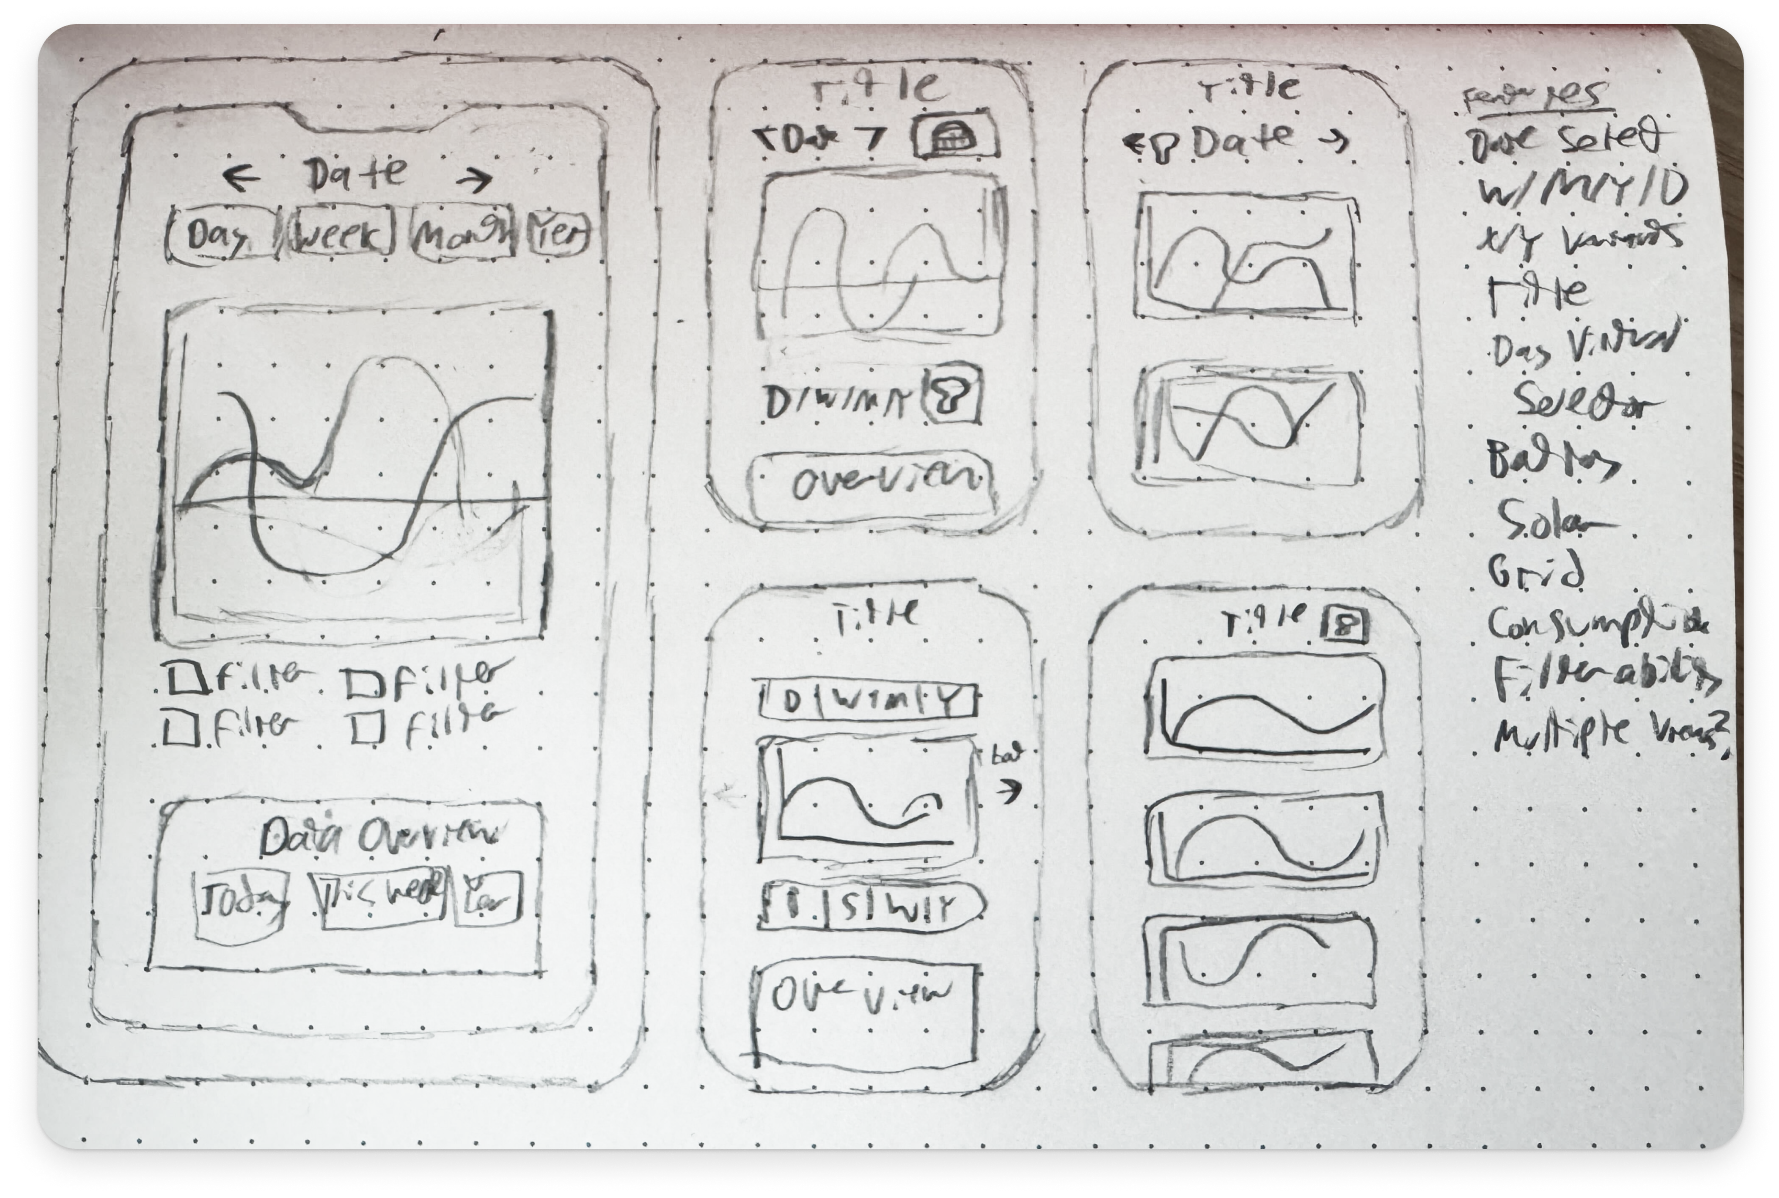 ← Date →
Day Week Month Year
Filter Filter
Filter Filter
Data Overview
Today This week Year
Title
< Date >
D/W/M/Y
Overview
Title
← Date →
Title
D|W|M|Y
→
|S|W|Y
Overview
Title
Features
Date Select
W/M/Y/D
X/Y
Title
Day
Selector
Battery
Solar
Grid
Consumption
Filterability
Multiple Views?